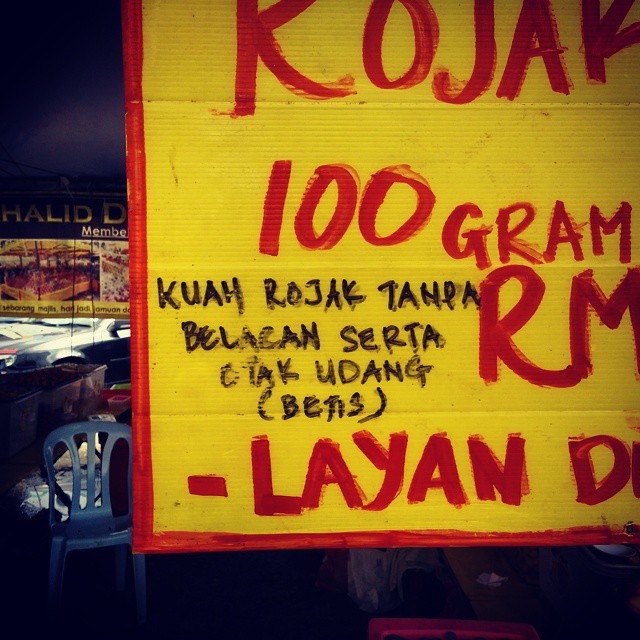 ROJAK
100 GRAM
RM
KUAH ROJAK TANPA
BELACAN SERTA
OTAK UDANG
(BETIS)
- LAYAN D
HALID D
Membe
sebarang majlis, hari jadi, jamuan d